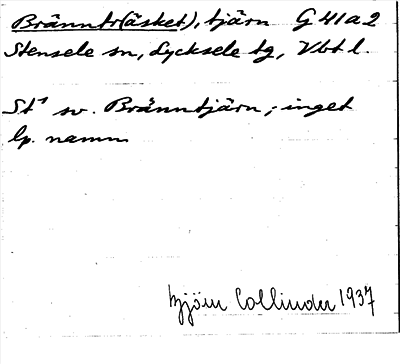 Bränntr(äsket), tjärn G 41 a 2
Stensele sn, Lycksele tg, Vbt l.
St¹ sv. Bränntjärn; inget
lp. namn
Björn Collinder 1937